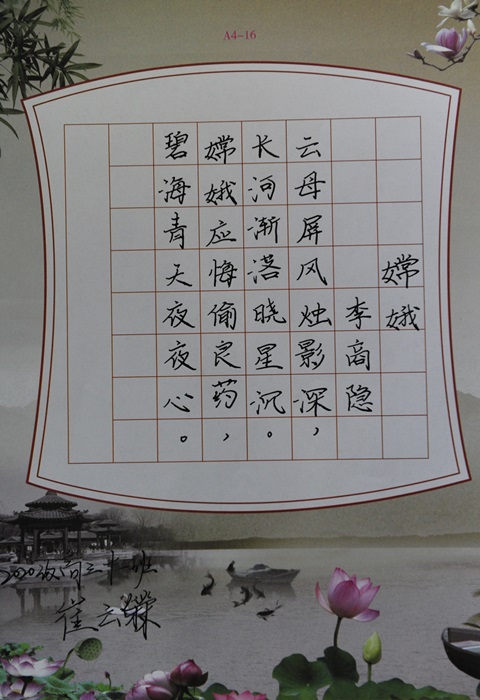 A4-16
嫦娥
李商隐
云母屏风烛影深，
长河渐落晓星沉。
嫦娥应悔偷良药，
碧海青天夜夜心。
2020级高三十班
崔云